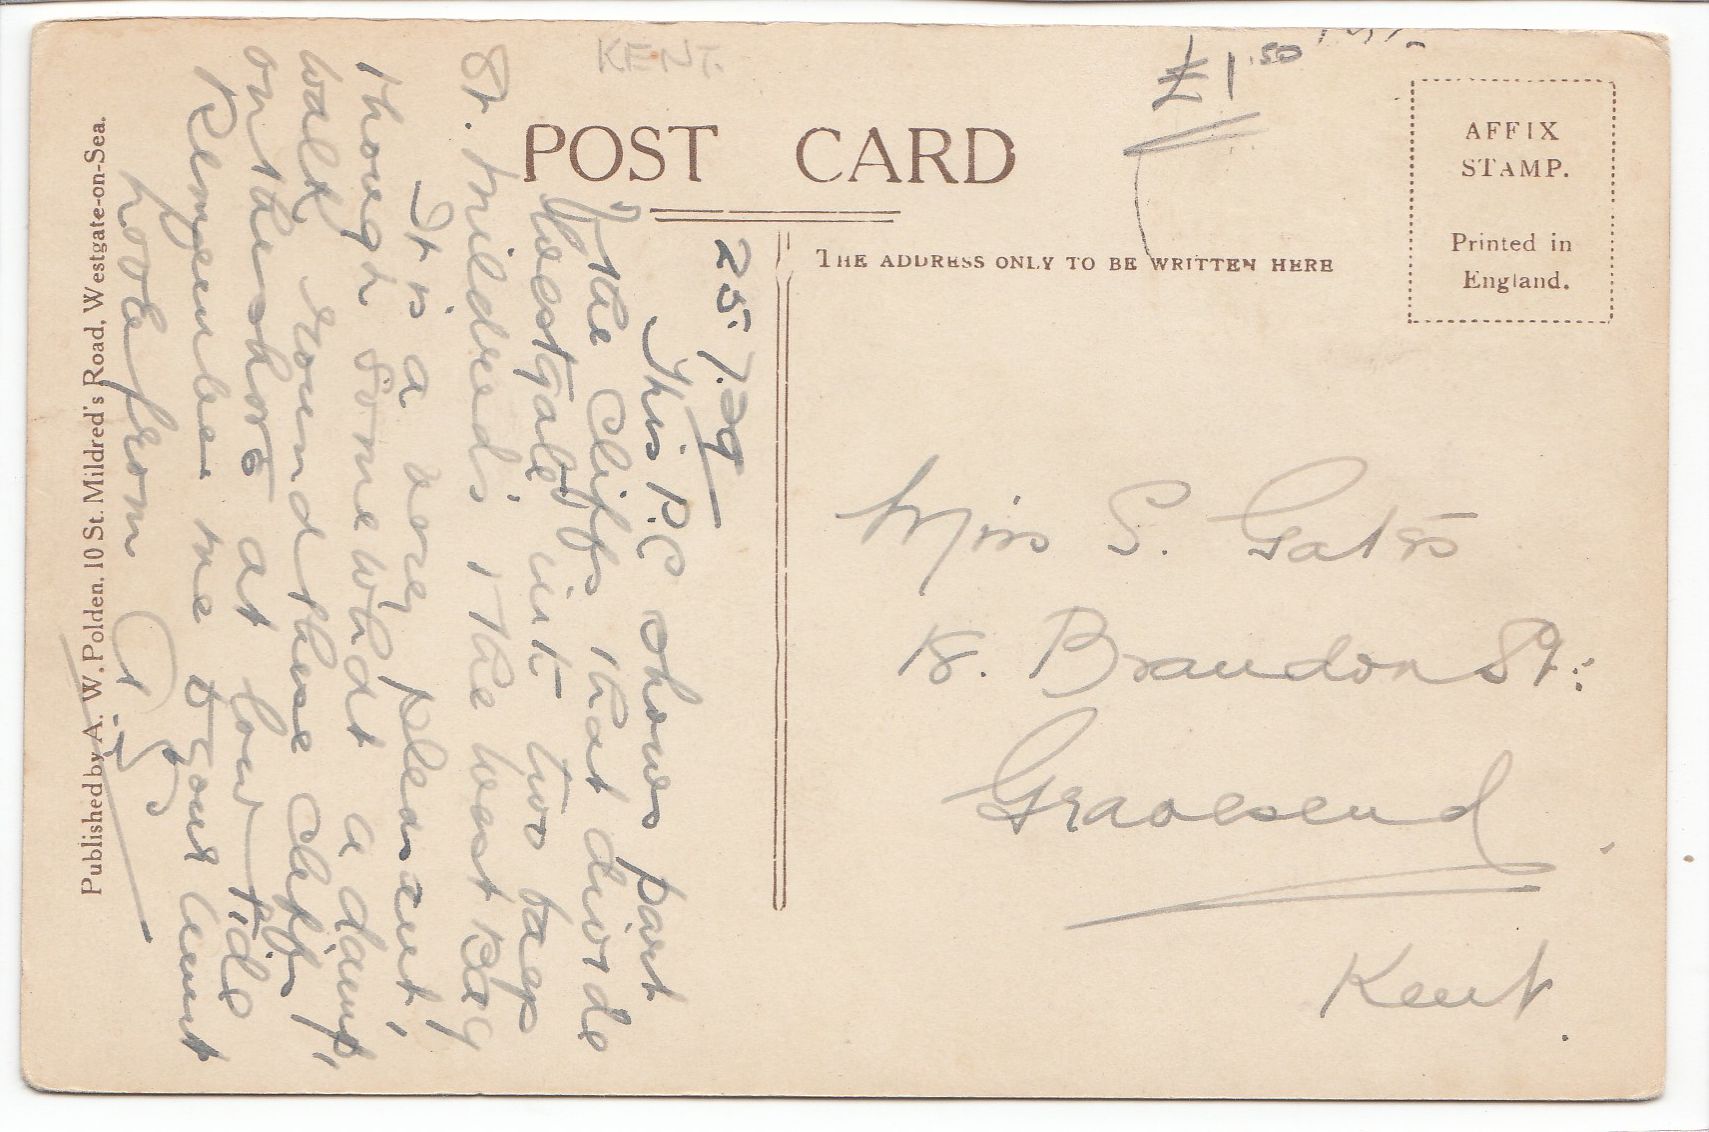 KENT.
£1.50
POST CARD
THE ADDRESS ONLY TO BE WRITTEN HERE
AFFIX
STAMP.
Printed in
England.
25.7.29
This P.C shows part
of the Cliffs that divide
Westgate into two bays
St. Mildred's & the West Bay
It is a very pleasant,
though somewhat a damp,
walk round these cliffs
on the shore at low tide
Remember me to your Aunt
Love from
Miss S. Gates
18. Brandon St:
Gravesend
Kent.
Published by A. W. Polden, 10 St. Mildred's Road, Westgate-on-Sea.